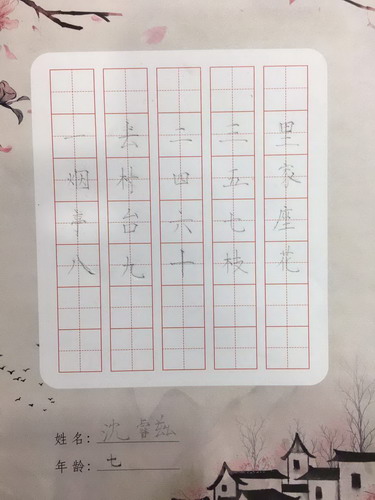 一去二三里
烟村四五家
亭台六七座
八九十枝花
姓名：沈睿
年龄：七